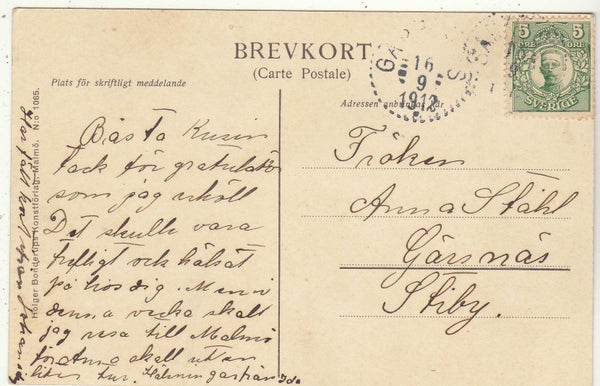 BREVKORT
(Carte Postale)
Plats för skriftligt meddelande
Adressen anbringas här
GÄRSNÄS
16
9
1912
5 5
ÖRE ÖRE
SVERIGE
Bästa Kusin
tack för gratulation
som jag erhöll
Det skulle vara
trefligt och hälsat
på hos dig. Men i
denna vecka skall
jag resa till Malmö
för Anna skall ut en
liten tur. Hälsningar från Ida
Fröken
Anna Ståhl
Gärsnäs
Stiby.
Holger Bonderups Konstförlag, Malmö. N:o 1065.
Har fått kort från Johan